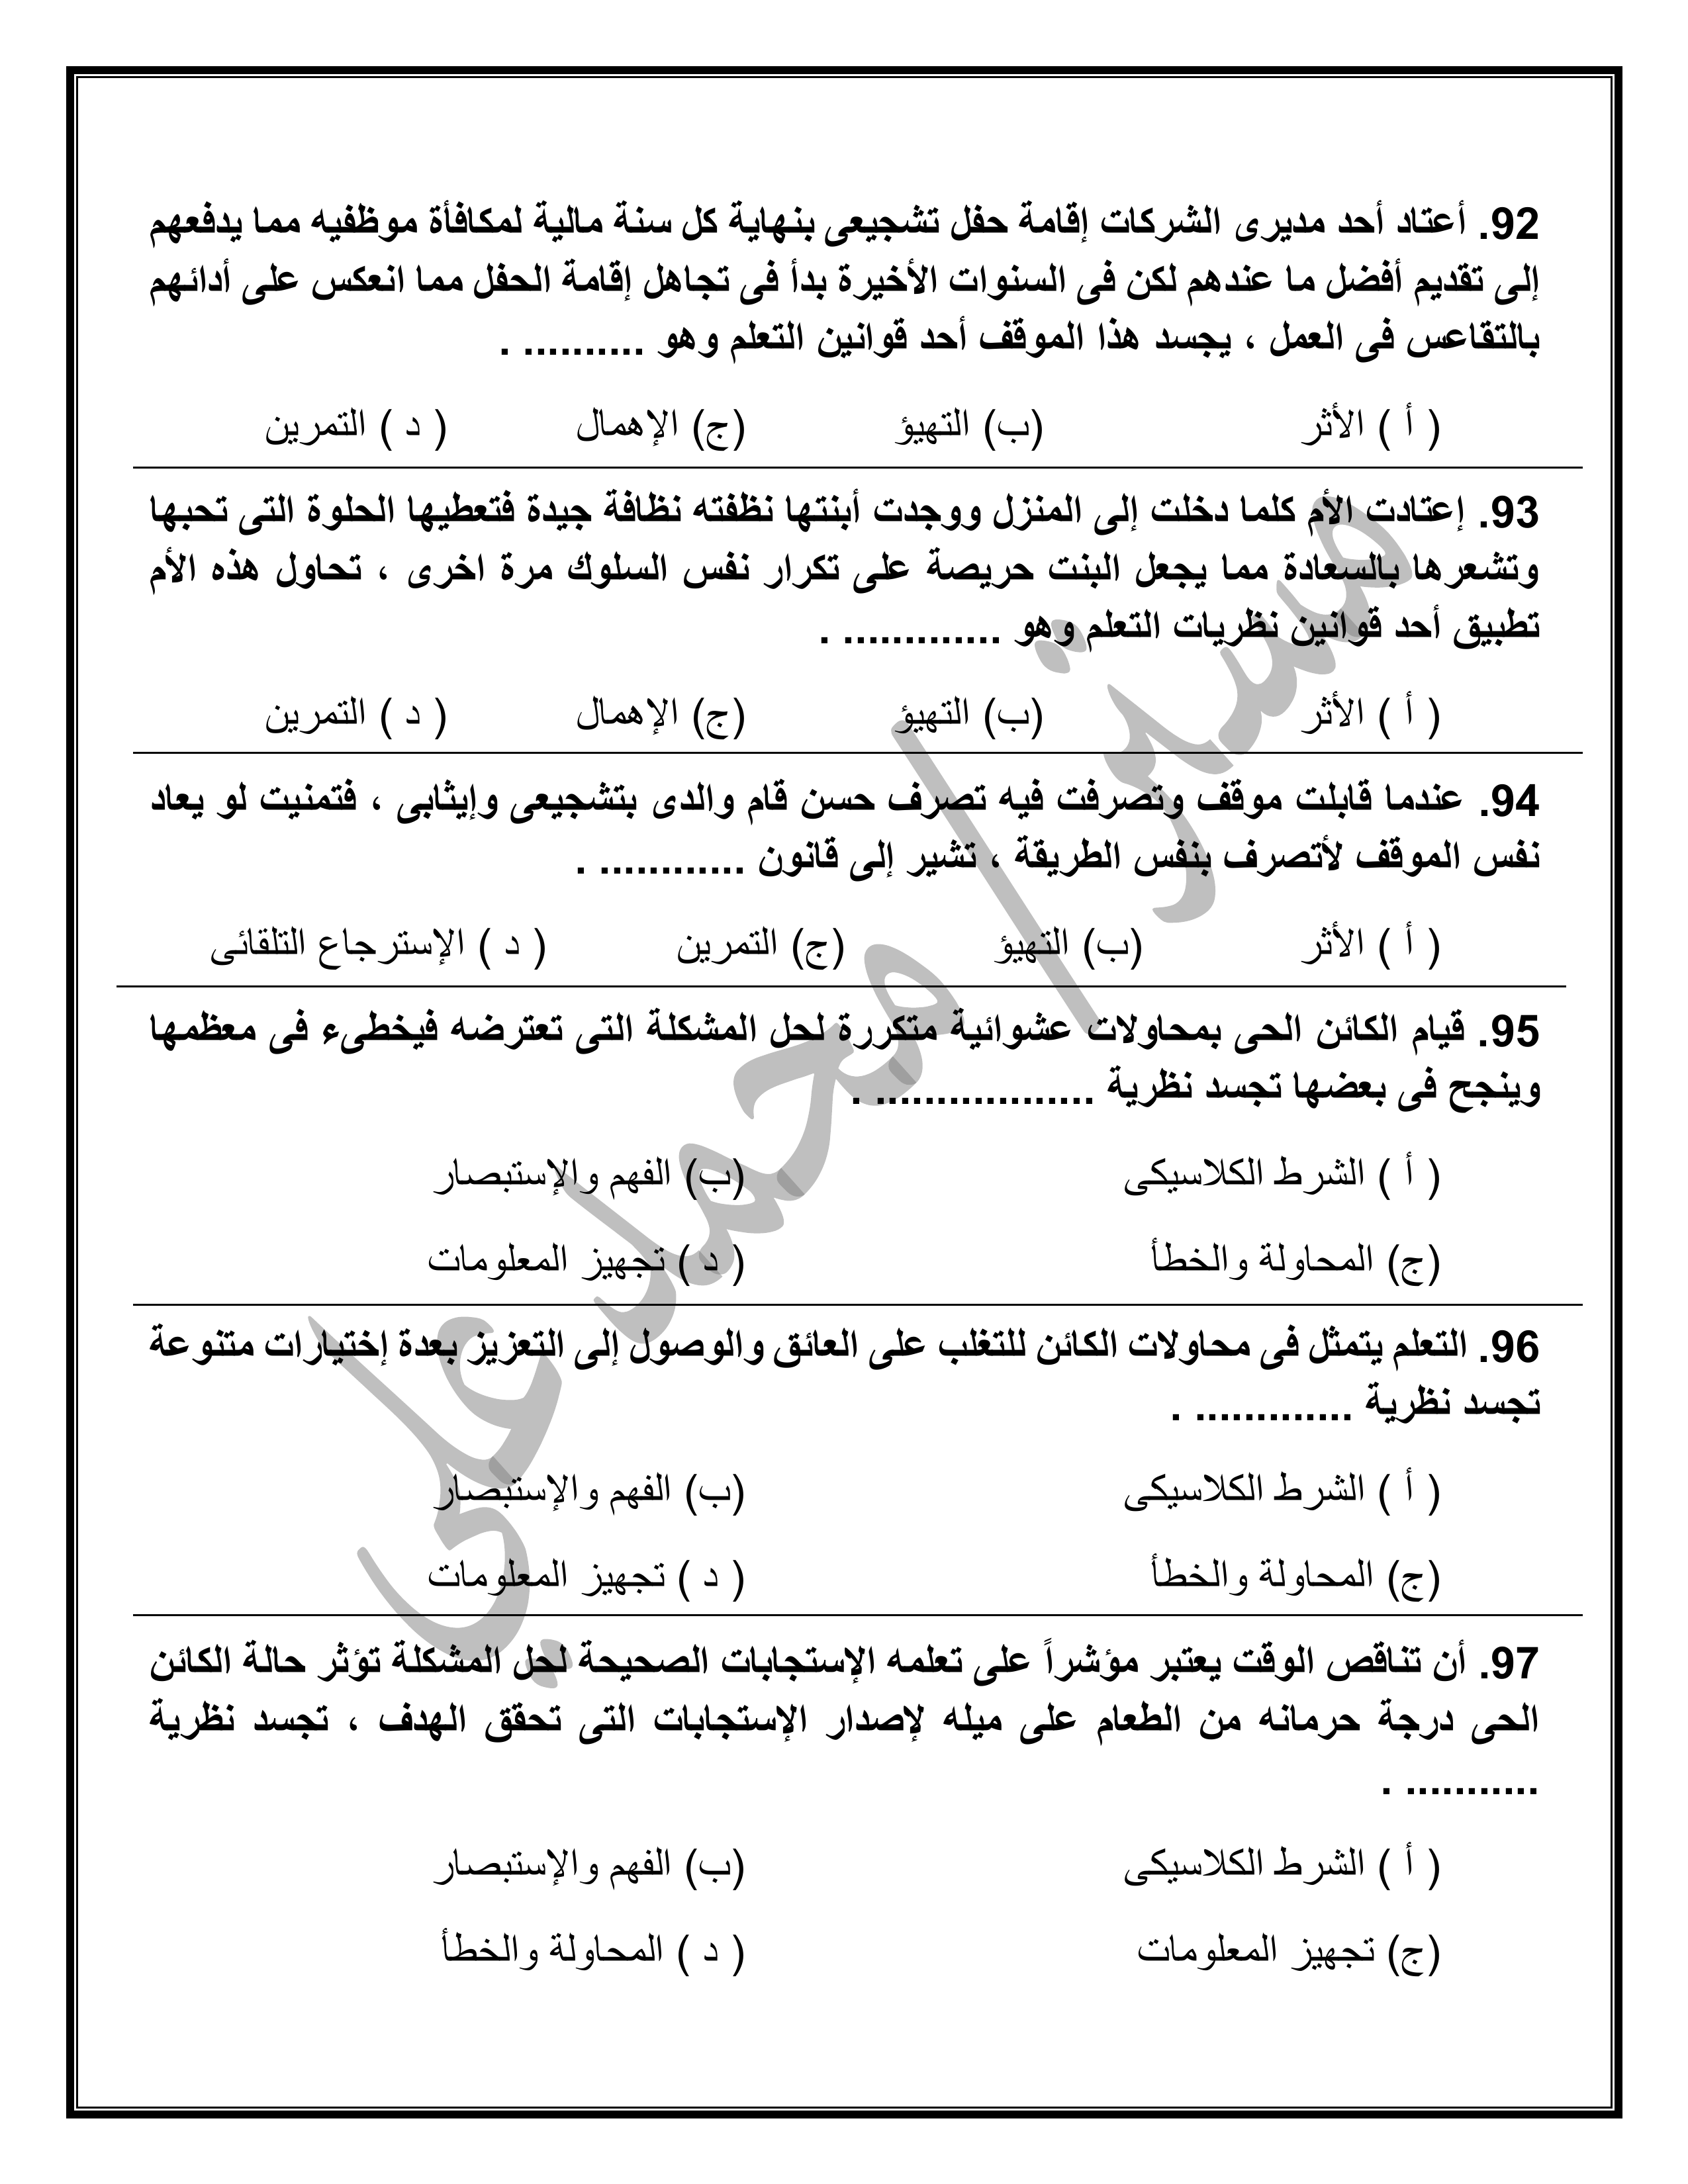 92. أعتاد أحد مديرى الشركات إقامة حفل تشجيعى بنهاية كل سنة مالية لمكافأة موظفيه مما يدفعهم
إلى تقديم أفضل ما عندهم لكن فى السنوات الأخيرة بدأ فى تجاهل إقامة الحفل مما انعكس على أدائهم
بالتقاعس فى العمل ، يجسد هذا الموقف أحد قوانين التعلم وهو .......... .
( أ ) الأثر (ب) التهيؤ (ج) الإهمال ( د ) التمرين
93. إعتادت الأم كلما دخلت إلى المنزل ووجدت أبنتها نظفته نظافة جيدة فتعطيها الحلوة التى تحبها
وتشعرها بالسعادة مما يجعل البنت حريصة على تكرار نفس السلوك مرة اخرى ، تحاول هذه الأم
تطبيق أحد قوانين نظريات التعلم وهو ............. .
( أ ) الأثر (ب) التهيؤ (ج) الإهمال ( د ) التمرين
94. عندما قابلت موقف وتصرفت فيه تصرف حسن قام والدى بتشجيعى وإيثابى ، فتمنيت لو يعاد
نفس الموقف لأتصرف بنفس الطريقة ، تشير إلى قانون ............ .
( أ ) الأثر (ب) التهيؤ (ج) التمرين ( د ) الإسترجاع التلقائى
95. قيام الكائن الحى بمحاولات عشوائية متكررة لحل المشكلة التى تعترضه فيخطىء فى معظمها
وينجح فى بعضها تجسد نظرية .................. .
( أ ) الشرط الكلاسيكى (ب) الفهم والإستبصار
(ج) المحاولة والخطأ ( د ) تجهيز المعلومات
96. التعلم يتمثل فى محاولات الكائن للتغلب على العائق والوصول إلى التعزيز بعدة إختيارات متنوعة
تجسد نظرية ............. .
( أ ) الشرط الكلاسيكى (ب) الفهم والإستبصار
(ج) المحاولة والخطأ ( د ) تجهيز المعلومات
97. أن تناقص الوقت يعتبر مؤشراً على تعلمه الإستجابات الصحيحة لحل المشكلة تؤثر حالة الكائن
الحى درجة حرمانه من الطعام على ميله لإصدار الإستجابات التى تحقق الهدف ، تجسد نظرية
........... .
( أ ) الشرط الكلاسيكى (ب) الفهم والإستبصار
(ج) تجهيز المعلومات ( د ) المحاولة والخطأ
مستر / محمد علي